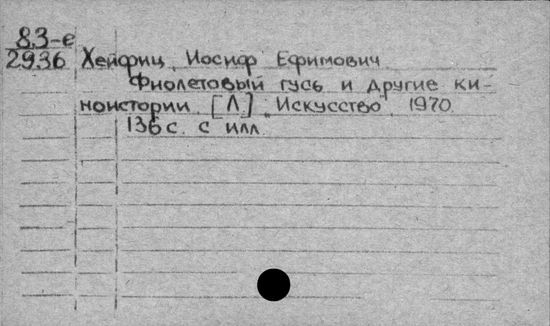 83-е
2936 Хейфиц Иосиф Ефимович
Фиолетовый гусь и другие ки-
ноистории. [Л] Искусство 1970.
136 с. с илл.